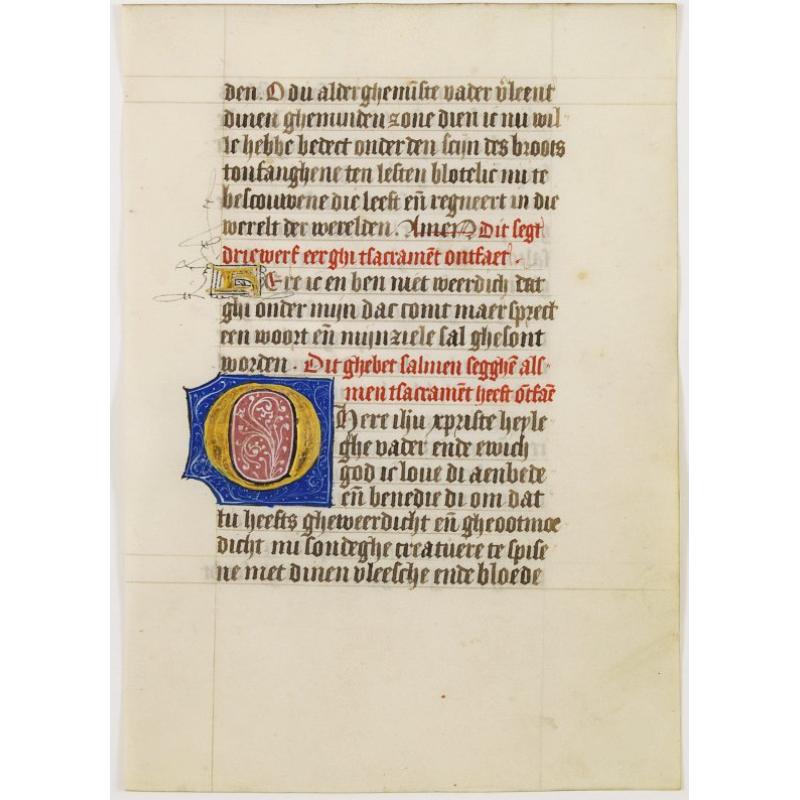 den. O du alderghemīste vader v̄leent
dinen ghemunden zone dien ic nu wil-
ic hebbe bedect onder den scijn des broots
tonfanghene ten lesten blotelic nu te
bescouwene die leeft en̄ regneert in die
werelt der werelden. Amen Dit segt
driewerf eer ghi tsacramēt ontfaet.
Here ic en ben niet weerdich dat
ghi onder mijn dac comt maer sprect
een woort en̄ mijn ziele sal ghesont
worden. Dit ghebet salmen segghē als-
men tsacramēt heeft ōtfaē
O here ihu xpriste heyle
ghe vader ende ewich
god ic love di aenbede
en̄ benedie di om dat
tu heefts gheweerdicht en̄ gheootmoe
dicht mi sondeghe creatuere te spise
ne met dinen vleesche ende bloede